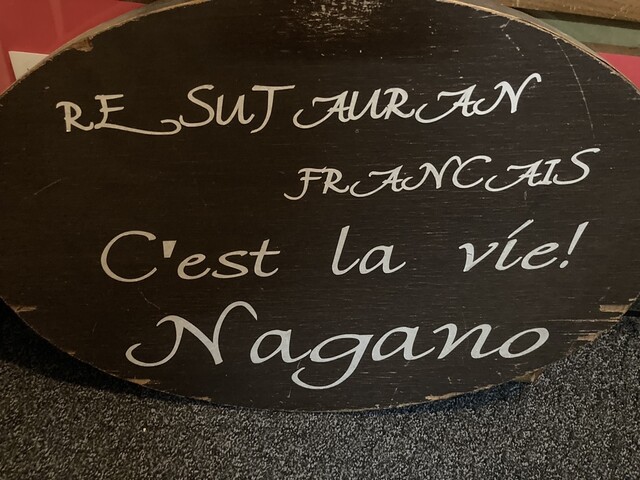 RESUTAURAN
FRANCAIS
C'est la víe!
Nagano